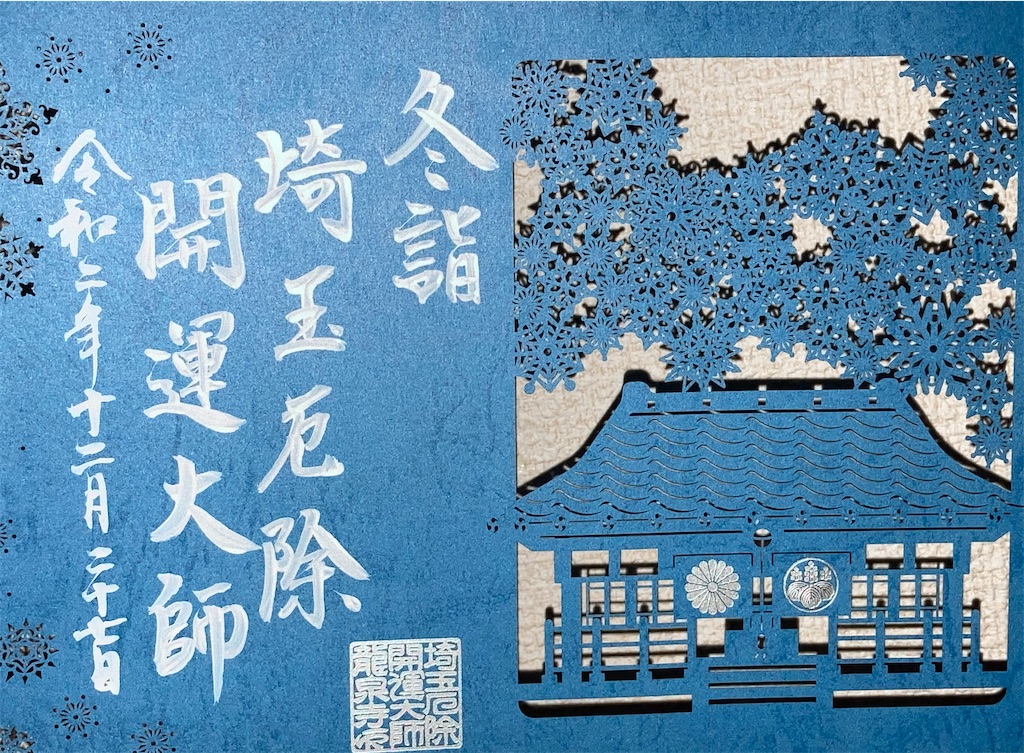 冬詣
埼玉厄除
開運大師
令和二年十二月二十七日
埼玉厄除
開運大師
龍泉寺印